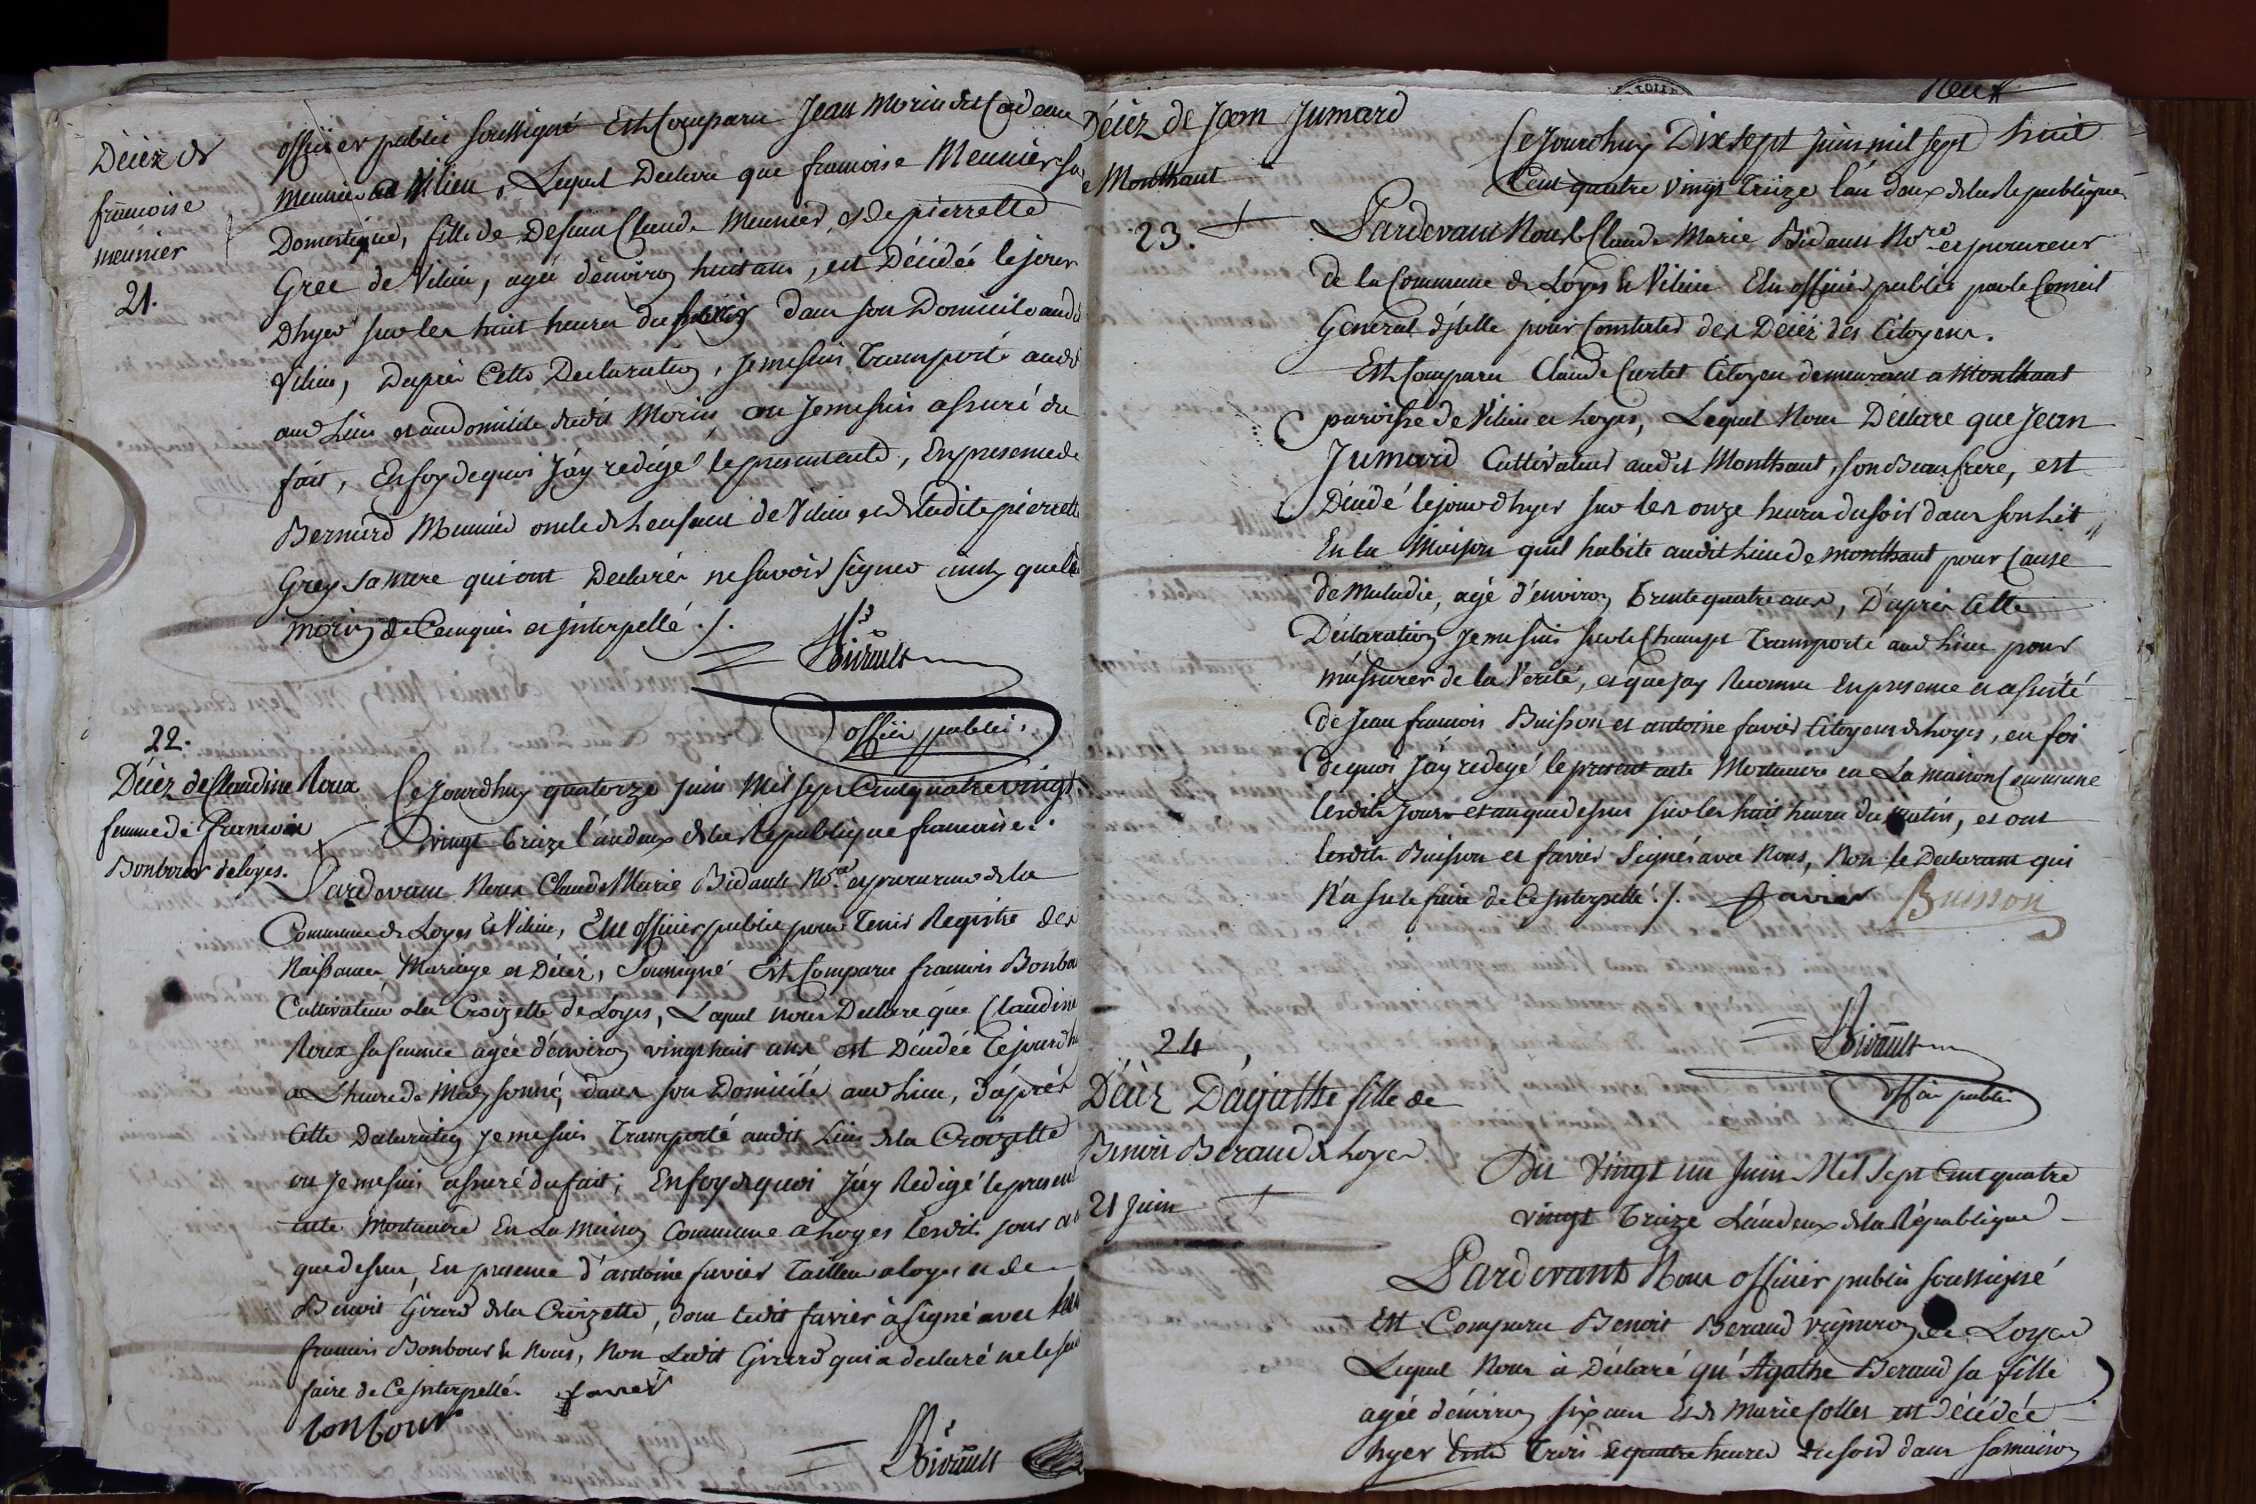 Décéz de
francoise
meunier
21.
officier public soussigné Est Comparu Jean Morin dit Cadeau
meunier a Vilieu, Lequel Declara que francoise Meunier sa
Domestique, fille de Defunt Claude Meunier & de pierrette
Gree de Vilieu, agée d'environ huit ans, est Décédée le jour
Dhyer sur les huit heures du dans son Domicile audit
Vilieu, Dapres Cette Declaration, je me suis Transporté audit
aud Lieu et au domicile dudit Morin, ou Je me suis assuré du
fait, En foy de quoi J'ay redigé le present acte, En presence de
Bernard Meunier oncle de Lenfant de Vilieu et de ladite pierrette
Grey sa mere qui ont Declarés ne savoir signer ainsy que le
Morin de Ce enquis et interpellé ./.
Bidault
officier public
22.
Décéz de Claudine Roux
femme de François
Bonbour de loyes.
Ce Jourdhuy quatorze juin Mil sept Cent quatre vingt
vingt treize l'an deux de la Republique francaise.
Pardevant Nous Claude Marie Bidault No.re et procureur de la
Commune de Loyes & Vilieu, Elu officier public pour Tenir Registre des
Naissances, Mariage et Décéz, Soussigné Est Comparu francois Bonbour
Cultivateur a la Croizette de Loyes, Lequel nous Declare que Claudine
Roux sa femme agée d'environ vingt huit ans est Décédée Cejourdhu
a L'heure de Midy sonné, dans son Domicile aud Lieu, d'aprés
Cette Declaration je me suis Transporté audit Lieu de la Croizette
ou je me suis assuré du fait; En foy de quoi J'ay Redigé le present
acte Mortuaire En La Maison Commune a Loyes lesdits jour et
que dessus, En presence d'antoine favier Tailleur a loyes et de
Benoit Girard de la Croizette, dont ledit favier à signé avec
francois Bonbour & Nous, Non Ledit Girard qui a declaré ne le
faire de Ce interpellé. favier
bonbour
Bidault
Décéz de Jean Jumard
de Monthaut
23.
Ce Jourdhuy Dix sept juin mil sept huit
Cent quatre vingt Treize l'an deux de la Republique
Pardevant Nous Claude Marie Bidault No.re et procureur
de la Commune de Loyes & Vilieu Elu officier public par le Conseil
Général d'jcelle pour Constater des Décéz des Citoyens.
Est Comparu Claude Curtet Citoyen demeurant a Monthaut
paroisse de Vilieu et Loyes, Lequel Nous Déclare que Jean
Jumard Cultivateur audit Monthaut, son Beau frere, est
Décédé le jour d'hyer sur les onze heures du soir dans son Lit
En la Maison quil habite audit Lieu de Monthaut pour Cause
de Maladie, agé d'environ trente quatre ans, D'aprés Cette
Déclaration je me suis sur le Champ Transporté aud Lieu pour
m'assurer de la Verité, et que j'ay Reconnu En presence et assisté
de Jean francois Buisson et antoine favier Citoyens de Loyes, en foi
de quoi J'ay redegé le present acte Mortuaire en La maison Commune
lesdits Jours et an que dessus sur les huit heures du matin, et ont
lesdits Buisson et favier Signés avec Nous, Non le Declarant qui
N'a su le faire de Ce interpellé ./. Favier Buisson
Bidault
officier public
24
Décéz D'agathe fille de
Benoit Beraud de Loyes
21 juin
Du Vingt un Juin Mil Sept Cent quatre
vingt Treize L'an deux de la République
Pardevant Nous officier public soussigné
Est Comparu Benoit Beraud vigneron de Loyes
Lequel Nous à Déclaré qu'Agathe Beraud sa fille
agée d'environ six ans Et de Marie Collet est décédée
hyer Entre Trois & quatre heures du soir dans sa maison